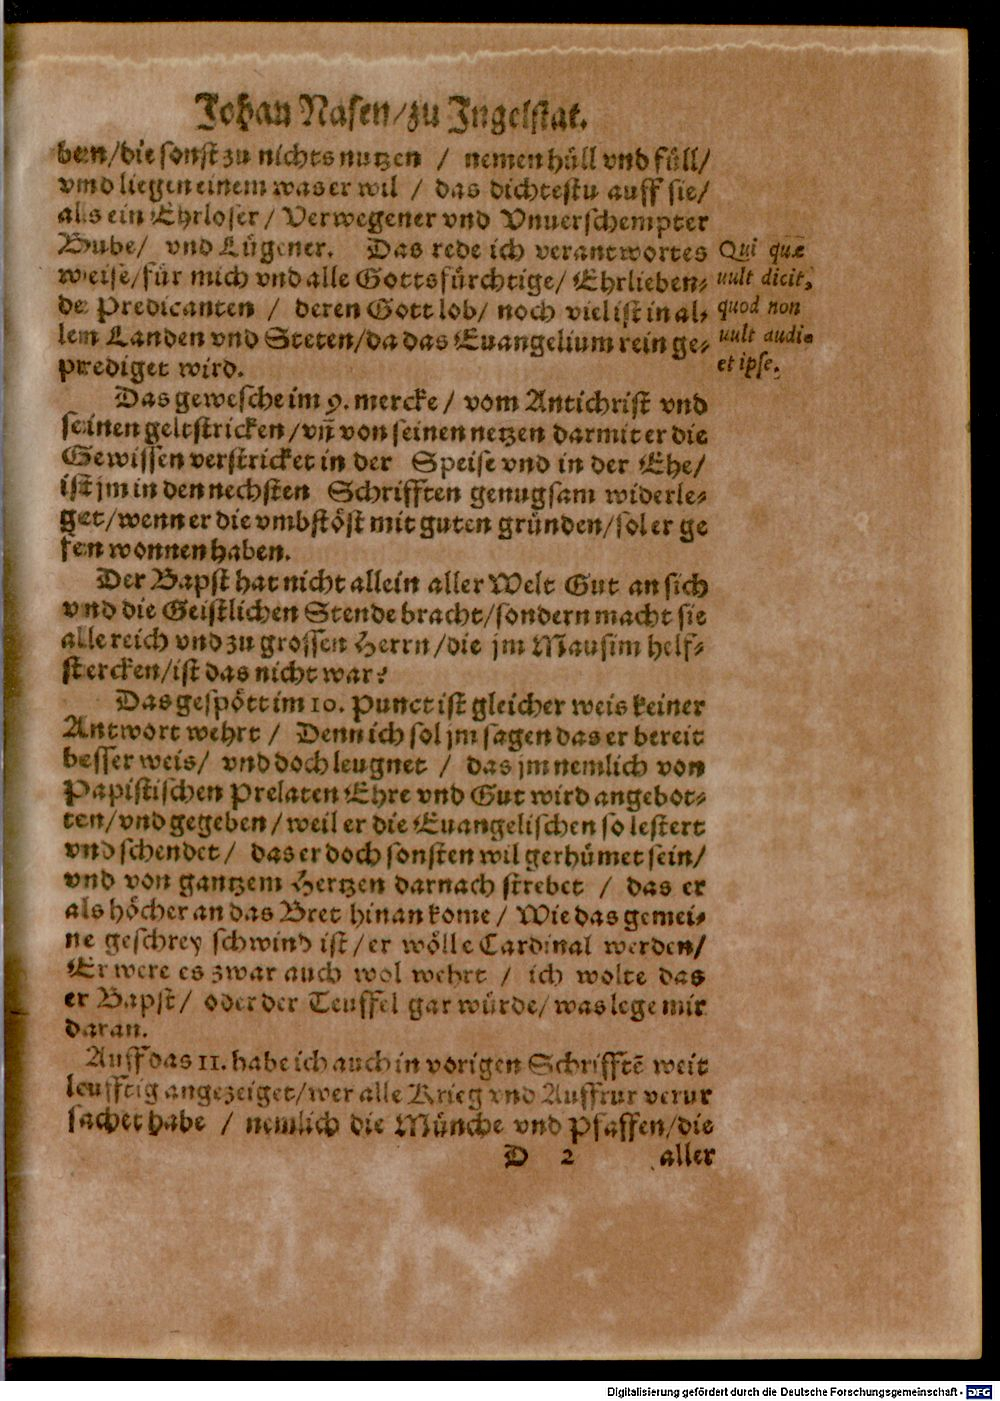 Johan Nasen/zu Ingelstat.
ben/die sonst zu nichts nutzen / nemen hüll vnd füll/
vnd liegen einem was er wil / das dichtestu auff sie/
als ein Ehrloser/ Verwegener vnd Vnuerschempter
Bube/ vnd Lügener. Das rede ich verantwortes
weise/für mich vnd alle Gottsfürchtige/ Ehrlieben⸗
de Predicanten / deren Gott lob/ noch viel ist in al⸗
lem Landen vnd Steten/da das Euangelium rein ge⸗
prediget wird.
Qui quæ
uult dicit,
quod non
uult audi⸗
et ipse.
Das gewesche im 9. mercke/ vom Antichrist vnd
seinen geltstricken/vñ von seinen netzen darmit er die
Gewissen verstricket in der Speise vnd in der Ehe/
ist jm in den nechsten Schrifften genugsam widerle⸗
get/wenn er die vmbstöst mit guten gründen/sol er ge
fen wonnen haben.
Der Bapst hat nicht allein aller Welt Gut an sich
vnd die Geistlichen Stende bracht/sondern macht sie
alle reich vnd zu grossen Herrn/die jm Mausim helf⸗
stercken/ist das nicht war?
Das gespött im 10. Punct ist gleicher weis keiner
Antwort wehrt/ Denn ich sol jm sagen das er bereit
besser weis/ vnd doch leugnet / das jm nemlich von
Papistischen Prelaten Ehre vnd Gut wird angebot⸗
ten/vnd gegeben/weil er die Euangelischen so lestert
vnd schendet/ das er doch sonsten wil gerhümet sein/
vnd von gantzem Hertzen darnach strebet / das er
als höcher an das Bret hinan kome/ Wie das gemei⸗
ne geschrey schwind ist/er wölle Cardinal werden/
Er were es zwar auch wol wehrt / ich wolte das
er Bapst/ oder der Teuffel gar würde/was lege mir
daran.
Auff das 11. habe ich auch in vorigen Schrifftẽ weit
leufftig angezeiget/wer alle Krieg vnd Auffrur verur
sachet habe / nemlich die Münche vnd Pfaffen/die
D 2 aller
Digitalisierung gefördert durch die Deutsche Forschungsgemeinschaft - DFG